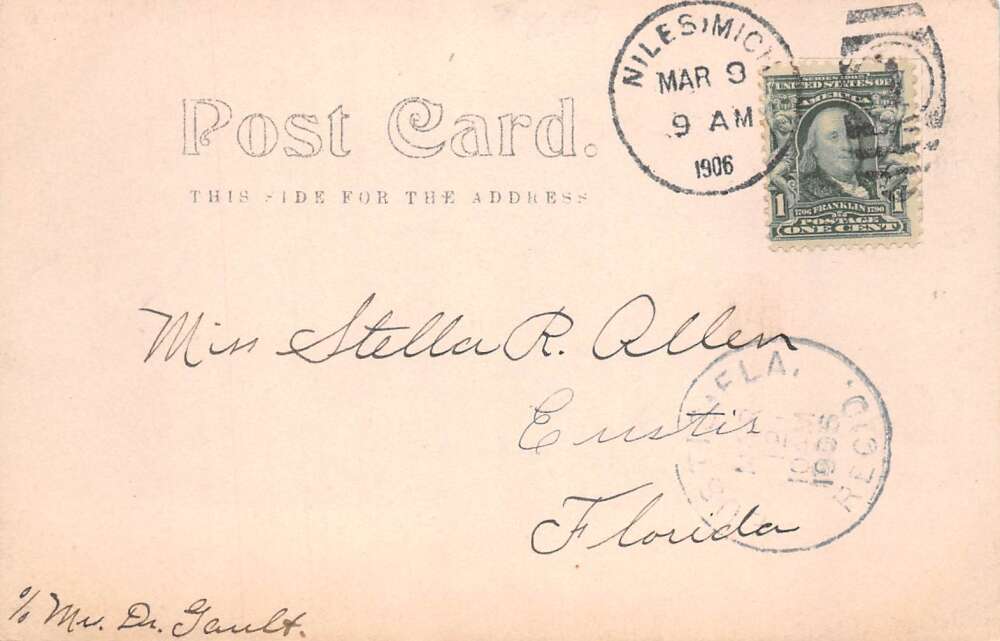 NILES, MICH.
MAR 9
9 AM
1906
SERIES 1902
UNITED STATES OF
AMERICA
1 1706 FRANKLIN 1790 1
POSTAGE
ONE CENT
Post Card.
THIS SIDE FOR THE ADDRESS
Miss Stella R. Allen
Eustis
Florida
EUSTIS, FLA.
REC'D.
1906
c/o Mr. Dr. Gault.